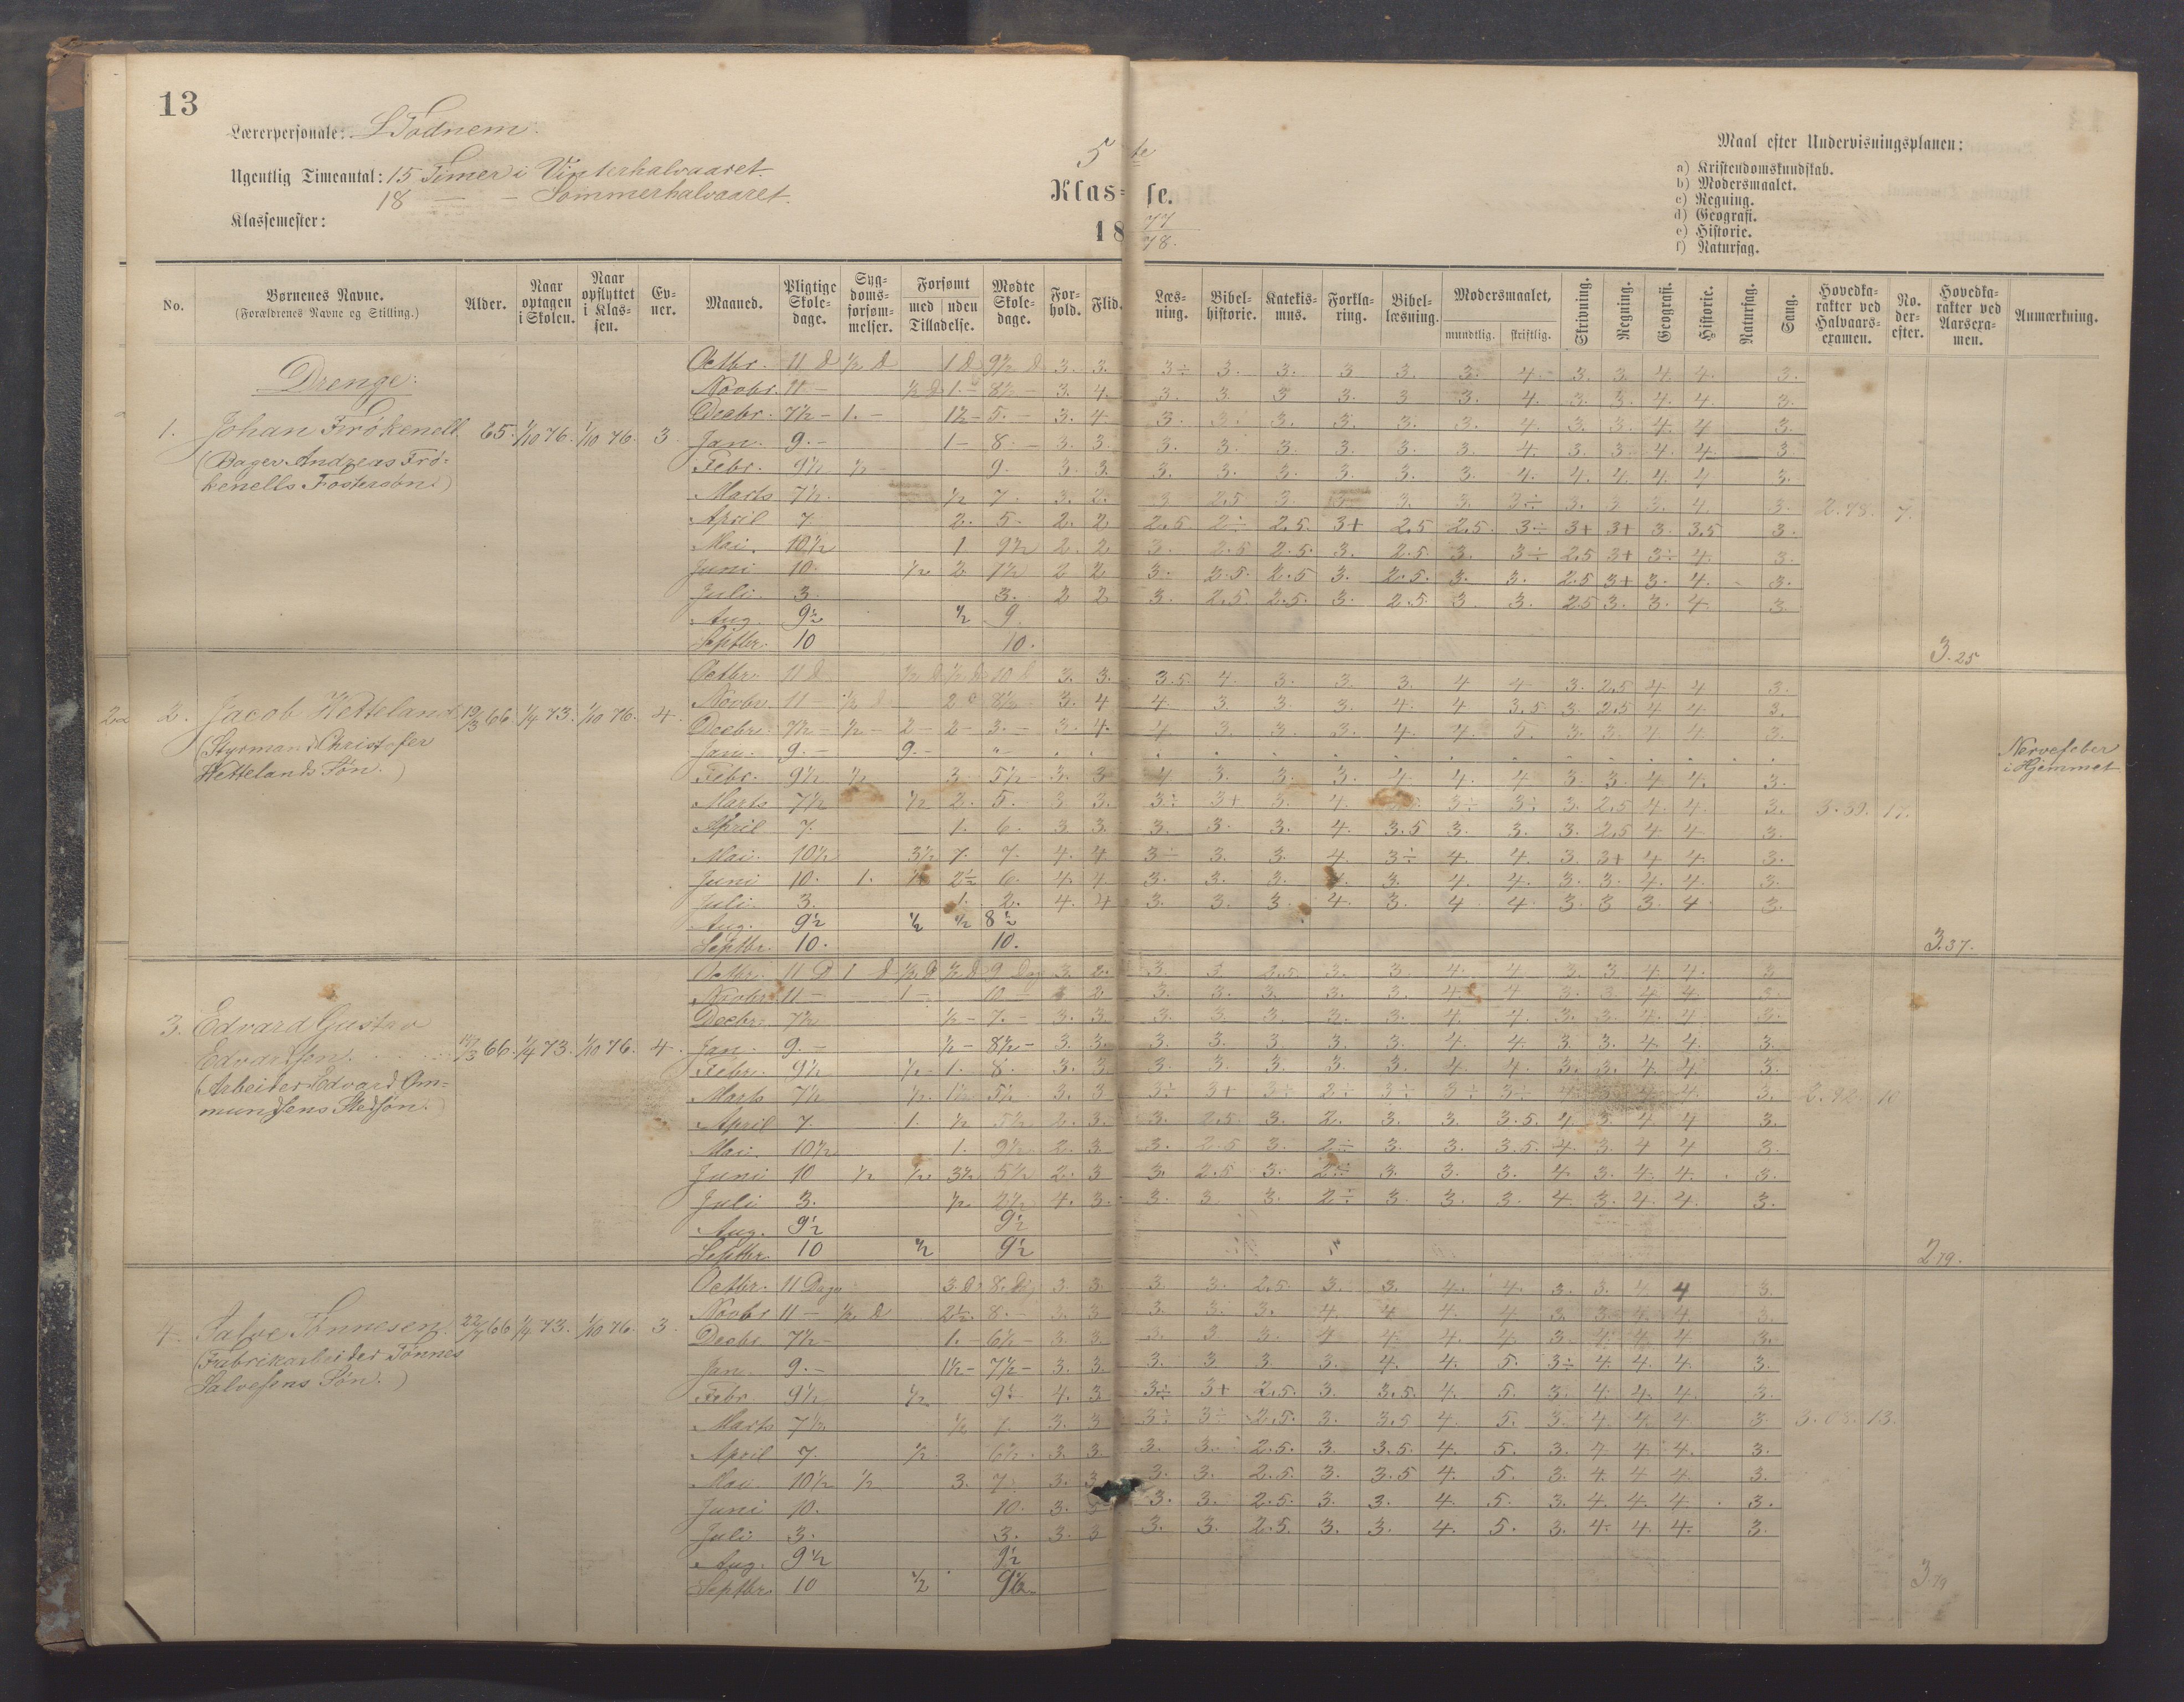 13
Lærerpersonale: L Todnem.
Ugentlig Timeantal: 15 Timer i Vinterhalvaaret.
18 — — Sommerhalvaaret.
Klassemester:
5te
Klasse.
1877/78.
Maal efter Undervisningsplanen:
a) Kristendomskundskab.
b) Modersmaalet.
c) Regning.
d) Geografi.
e) Historie.
f) Naturfag.
No. Børnenes Navne. (Forældrenes Navne og Stilling.) Alder. Naar optagen i Skolen. Naar opflyttet i Klassen. Evner. Maaned. Pligtige Skoledage. Sygdomsforsømmelser. Forsømt med uden Tilladelse. Mødte Skoledage. Forhold. Flid. Læsning. Bibelhistorie. Katekismus. Forklaring. Bibellæsning. Modersmaalet, mundtlig. skriftlig. Skrivning. Regning. Geografi. Historie. Naturfag. Sang. Hovedkarakter ved Halvaarsexamen. No. derefter. Hovedkarakter ved Aarsexamen. Anmærkning.
Drenge:
1. Johan Frøkenell 65. 1/10 76. 1/10 76. 3
(Bager Andreas Frø-
kenells Fostersøn.)
Octbr. 11 d ½ d 1 d 9½ d 3. 3. 3÷ 3. 3. 3 3. 3. 4. 3. 3. 4. 4. 3.
Novbr. 11 — ½ d 1 — 8½ — 3. 4. 3. 3. 3 3. 3 3. 4. 3. 3. 4. 4. 3.
Decbr. 7½ — 1. — 1½ — 5. — 3. 4. 3. 3. 3. 3. 3. 3. 4. 3. 3. 4. 4 3.
Jan. 9. — 1 — 8. — 3. 3. 3. 3. 3. 3. 3. 3. 4. 3. 3. 4. 4. 3
Febr. 9½ ½ — 9. 3. 3. 3. 3. 3. 3. 3. 3. 4. 4. 4. 4. 4 3.
Marts 7½ ½ 7. 3. 2. 3 2.5 3. 3. 3. 3÷ 3. 3 3. 4. 3. 2.78. 7.
April 7 2. 5. 2. 2 2.5. 2÷ 2.5. 3+ 2.5 2.5. 3÷ 3+ 3+ 3. 3.5 3.
Mai. 10½ 1 9½ 2. 2 3. 2.5 2.5. 3. 2.5. 3. 3÷ 2.5 3+ 3÷ 4. 3.
Juni 10. ½ 2 7½ 2 2 3. 2.5. 2.5 3. 2.5. 3. 3. 2.5 3+ 3. 4. 3.
Juli. 3. 3. 2 2 3. 2.5. 2.5. 3. 2.5. 3 3. 2.5 3. 3. 4. 3.
Aug. 9½ ½ 9.
Septbr. 10 10.
3.25
2. Jacob Hetteland 19/3 66. 1/4 73. 1/10 76. 4.
(Styrmand Christofer
Hettelands Søn.)
Octbr. 11 d ½ d ½ d 10 d 3. 3. 3.5 4. 3. 3. 3. 4 4. 3. 2.5 4 4 3.
Novbr. 11 — ½ d 2 8½ 3. 4 4. 3 3. 3. 4. 4 3.5. 3. 2.5 4. 4. 3.
Decbr. 7½ — ½ — 2 — 2 — 3. — 3. 4. 4 3. 3. 3. 4. 4. 5. 3. 3. 4 4 3.
Jan. 9. — 9. — " —
Nervefeber
i Hjemmet
Febr. 9½ ½ 3. 5½ — 3. 3 4 3. 3. 3. 4. 4. 4 3. 3. 4 4. 3.
Marts 7½ ½ 2. 5. 3 3. 3÷ 3+ 3. 4. 3÷ 3÷ 3. 2.5 4. 4. 3. 17.
April 7. 1. 6. 3 3. 3. 3. 3. 4. 3.5 3. 3. 3. 2.5 4 4 3.
Mai. 10½ 3½ 7. 4. 4. 3÷ 3. 3. 4 3÷ 4. 4. 3 3+ 4 4. 3.
Juni 10. 1. 2½ 6. 4. 4 3. 3. 3. 4. 3. 4. 4. 3. 3. 4. 4. 3.
Juli. 3. 1. 2. 4. 4 3. 3. 3. 4. 3. 4 4. 3 3 3. 4 3.
Aug. 9½ ½ ½ 8½
Septbr. 10. 10.
3.37.
3. Edvard Gustav
Edvardsen. 66. 1/4 73. 1/10 76. 4.
(Arbeider Edvard Om-
mundsens Stedsøn.)
Octbr. 11 D 1 d ½ d ½ d 9 Dag 3. 2. 3. 3. 2.5. 3. 3. 4. 4. 3. 3 4. 4. 3
Novbr. 11 — 1 — 10 — 3 2. 3. 3. 3. 3. 3. 4. 4 3. 3. 4. 4. 3.
Decbr. 7½ ½ — 7. — 3. 3. 3. 3. 3. 3. 3. 4. 4. 3. 3. 4. 4. 3.
Jan. 9. — ½ — 8½ — 3. 3. 3. 3. 3. 3. 3. 4. 4. 3. 3. 4. 4. 3.
Febr. 9½ ½ — 1. 8. 3. 3. 3. 3. 3. 3. 3. 4. 4. 3. 3. 4. 4. 3.
Marts 7½ ½ 1½ 5½ 3. 3 3÷ 3+ 3÷ 2÷ 3÷ 3÷ 3÷ 4 3. 2.92. 10
April 7. 1. ½ 5½ 2. 3. 3. 2.5. 3. 2. 3. 3. 3.5. 4. 3. 4 4. 3.
Mai. 10½ 1. 9½ 2. 3 3. 2.5 3. 2÷ 3. 3. 3.5. 4. 3. 4 4 3.
Juni 10 ½ ½ 3½ 5½ 2. 3 3. 2.5 3. 2÷ 3. 3. 3. 4. 3. 4. 4. 3.
Juli 3. ½ 2½ 4. 3. 3. 3. 3. 2÷ 3 3. 3. 4. 3. 4. 4. 3.
Aug. 9½ 9½
Septbr. 10 ½ 9½
2.79.
4. Salve Tønnesen. 66. 1/4 73. 1/10 76. 3.
(Fabrikarbeider Tønnes
Salvesens Søn.)
Octbr. 11 Dage 3. d. 8. 3. 3. 3 3. 2.5. 3. 3. 4. 4. 3. 3. 4 4 3.
Novbr 11 — ½ d 2½. 8. — 3. 3 3. 3. 3. 4 4 4. 4. 3. 3. 4. 4. 3.
Decbr. 7½ — 1. — 6½ — 3. 3. 3. 3 3. 4 4. 4. 4. 3. 4. 4. 4 3.
Jan. 9. — 1½ — 7½ — 3. 3. 3. 3 3. 3. 4. 4. 5. 3÷ 4. 4. 4. 3.
Febr. 9½ ½ 9½ 4. 3 3÷ 3+ 2.5. 3. 3.5. 4. 5. 3. 4. 4. 4. 3.
Marts 7½ ½ 7. 3. 3 3÷ 3÷ 2.5. 3. 3.5 4. 5. 3. 4. 4. 4. 3 3.08. 13.
April 7. ½. 6½ 3. 3. 3. 3. 2.5. 3. 3.5. 4. 5. 3. 4 4. 4. 3.
Mai. 10½ ½ 3. 7. 3. 3 3. 3. 2.5. 3. 3.5 4. 5. 3. 4. 4. 4. 3.
Juni 10. 10. 3. 3. 3. 2.5. 3. 3. 4. 5. 3. 4. 4. 4. 3.
Juli 3. 3. 3. 3 3. 3. 2.5. 3. 3. 4. 5. 3. 4. 4. 4. 3.
Aug. 9½ 9½
Septbr. 10 ½ 9½